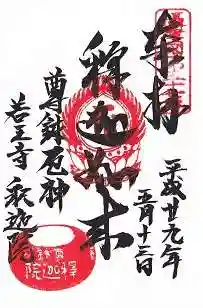 奉拝
平成廿九年
五月十三日
釋迦如来
尊鉢厄神
若王寺 釈迦院
釋迦院